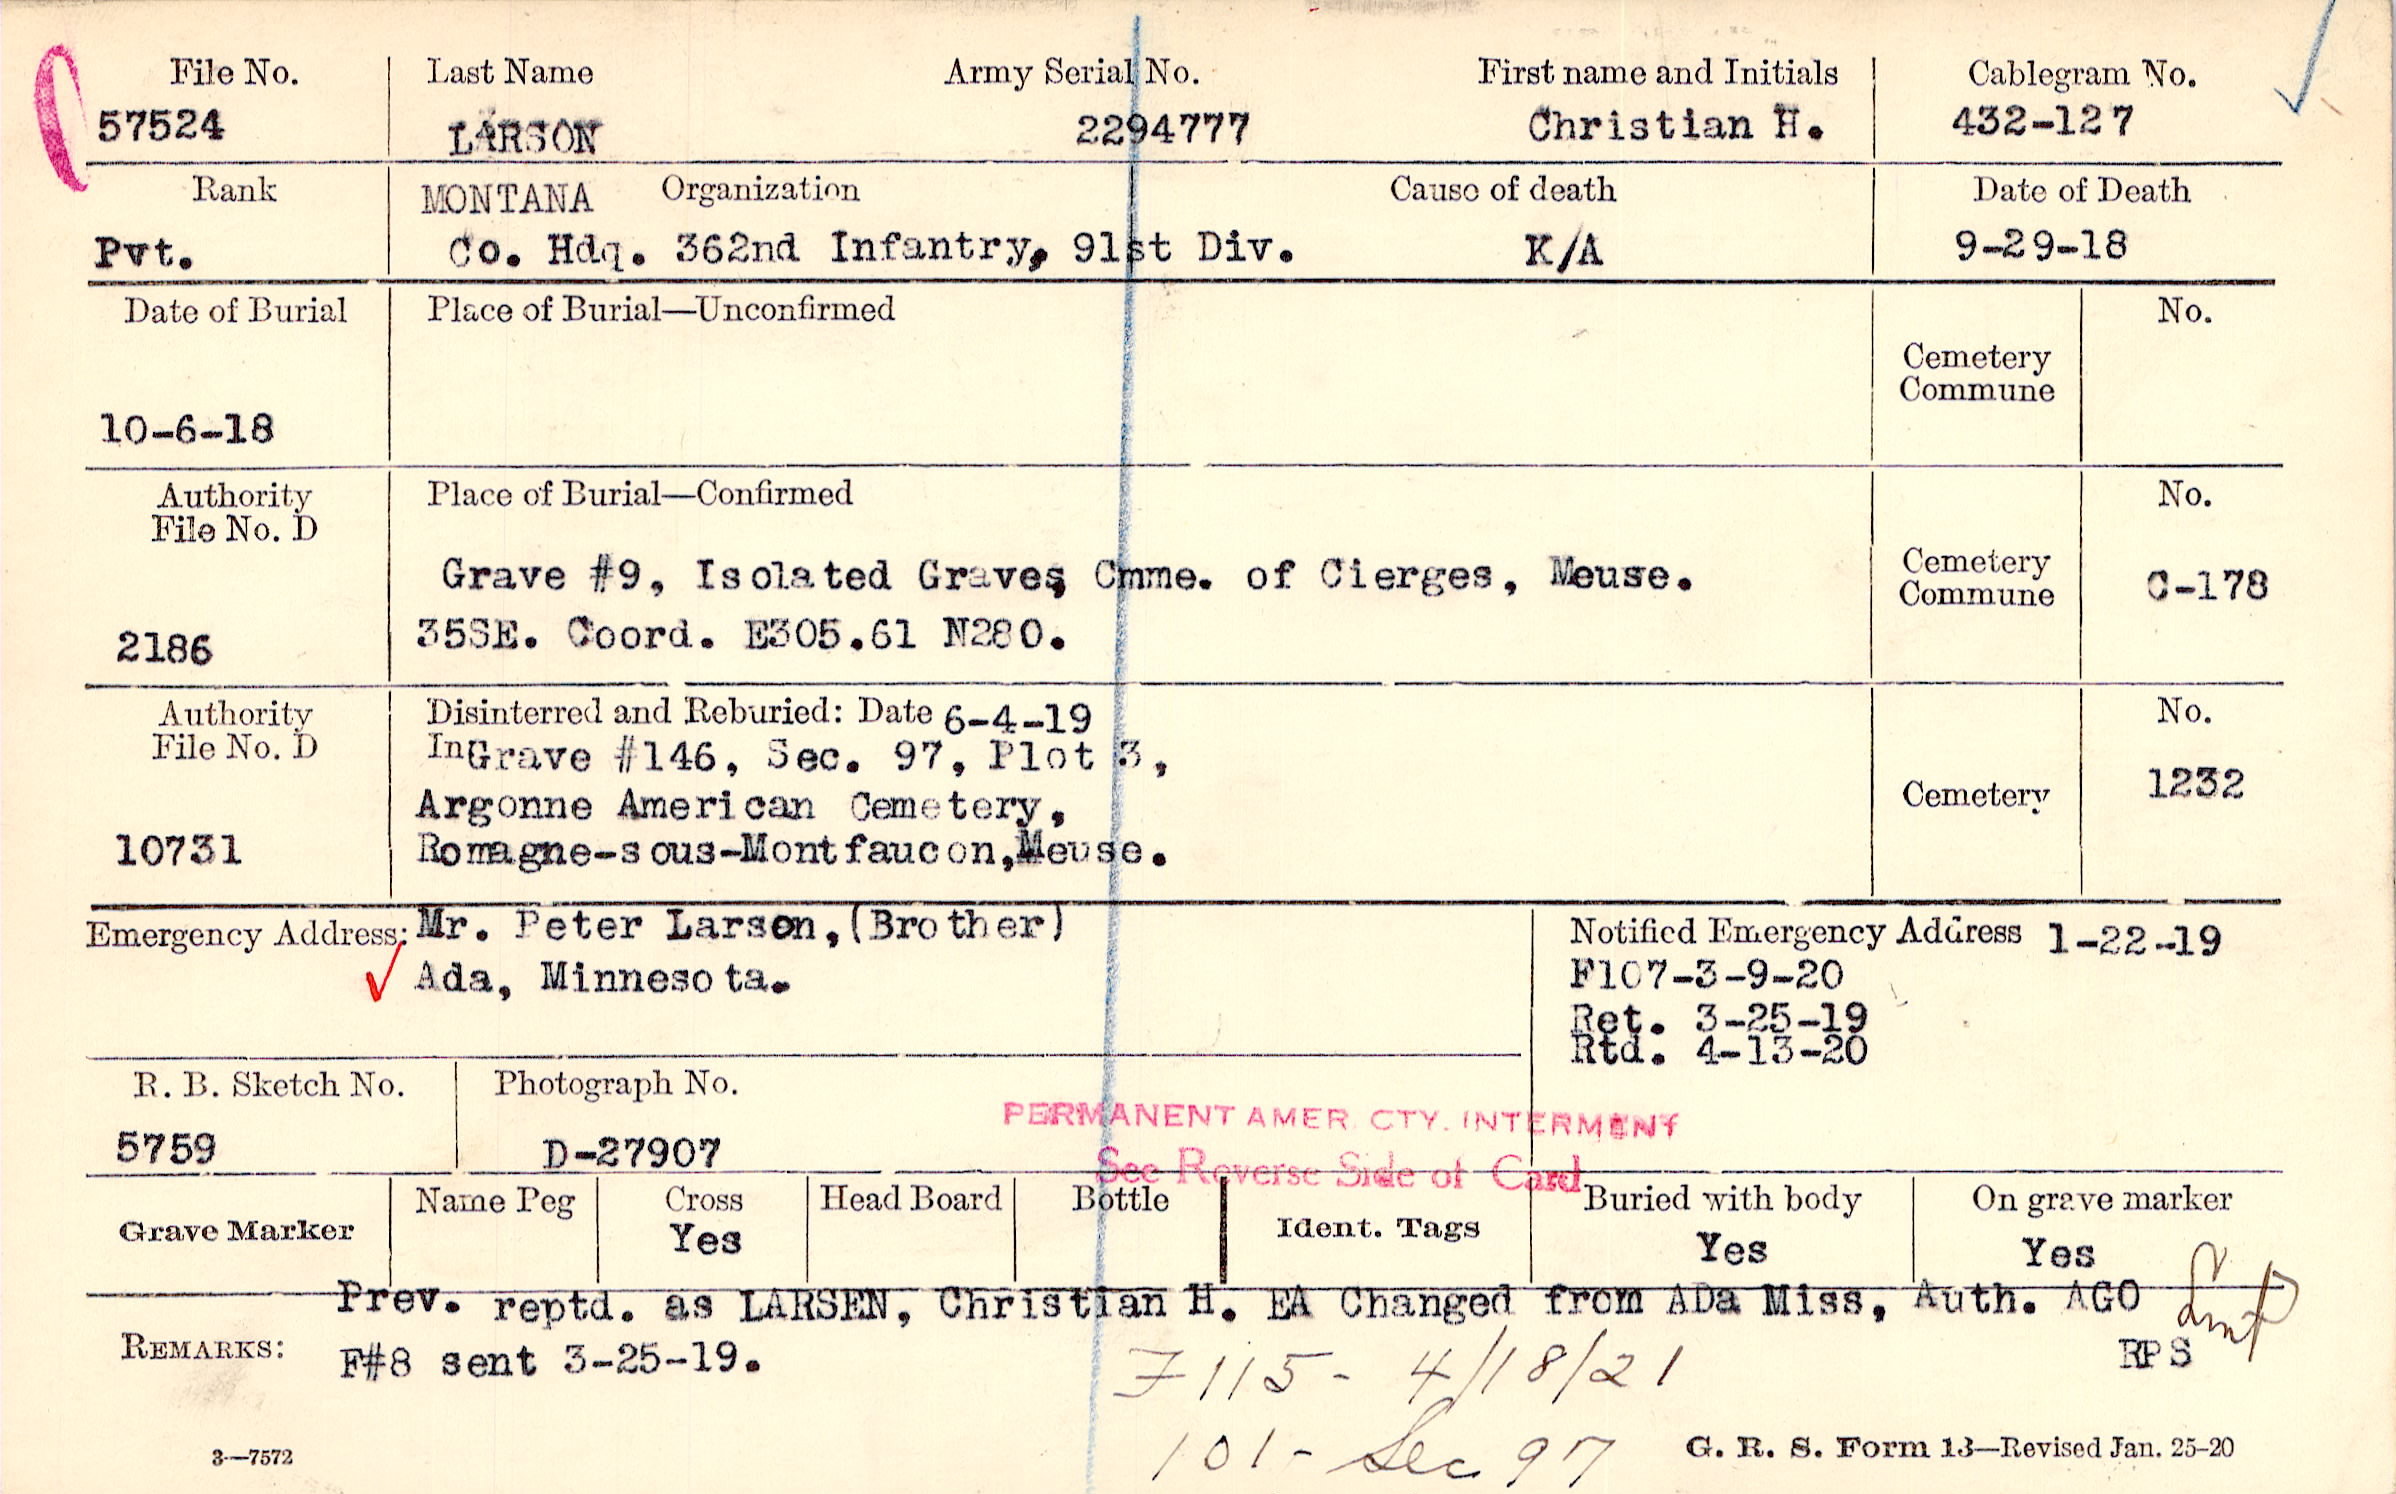 File No. Last Name Army Serial No. First name and Initials Cablegram No.
57524 LARSON 2294777 Christian H. 432-127
Rank MONTANA Organization Cause of death Date of Death
Pvt. Co. Hdq. 362nd Infantry, 91st Div. K/A 9-29-18
Date of Burial Place of Burial—Unconfirmed No.
Cemetery
Commune
10-6-18
Authority Place of Burial—Confirmed No.
File No. D
Grave #9, Isolated Graves, Cmme. of Cierges, Meuse. Cemetery
Commune C-178
2186 35SE. Coord. E305.61 N280.
Authority Disinterred and Reburied: Date 6-4-19 No.
File No. D In Grave #146, Sec. 97, Plot 3,
Argonne American Cemetery, Cemetery 1232
10731 Romagne-sous-Montfaucon, Meuse.
Emergency Address: Mr. Peter Larson, (Brother) Notified Emergency Address 1-22-19
Ada, Minnesota. F107-3-9-20
Ret. 3-25-19
Rtd. 4-13-20
R. B. Sketch No. Photograph No.
5759 D-27907
PERMANENT AMER. CTY. INTERMENT
See Reverse Side of Card
Grave Marker Name Peg Cross Head Board Bottle Ident. Tags Buried with body On grave marker
Yes Yes Yes
Prev. reptd. as LARSEN, Christian H. EA Changed from ADa Miss, Auth. AGO
REMARKS: F#8 sent 3-25-19. RPS
F115 - 4/18/21
101- Sec 97
3—7572 G. R. S. Form 13—Revised Jan. 25-20